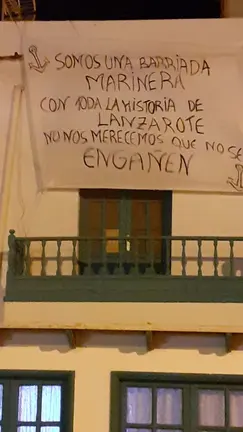 SOMOS UNA BARRIADA
MARINERA
CON TODA LA HISTORIA DE
LANZAROTE
NU NOS MERECEMOS QUE NO SE
ENGAÑEN